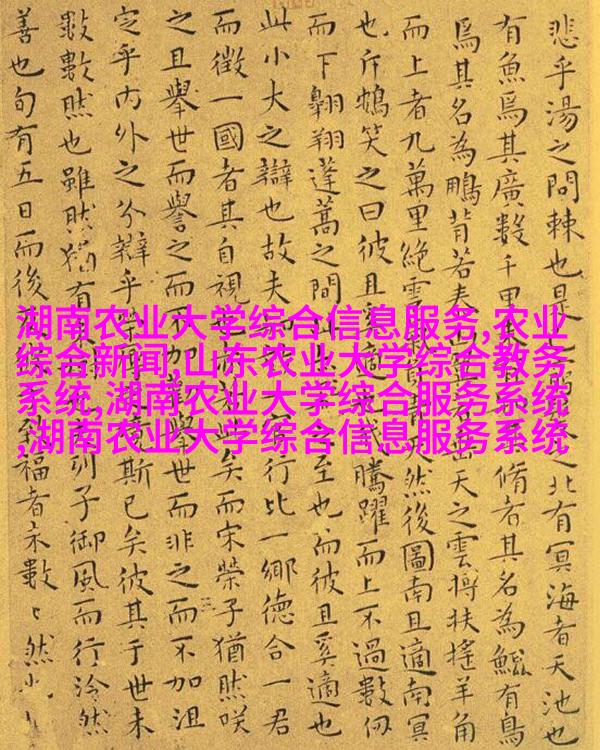 悲乎湯之問棘也是之北有冥海者天池也
有魚焉其廣數千里未有脩者其名為鯤有鳥
焉其名為鵬背若泰山垂天之雲摶扶搖羊角
而上者九萬里絕雲氣青天然後圖南且適南冥
也斥鴳笑之曰彼且奚適騰躍而上不過數仞
而下翱翔蓬蒿之間此至也而彼且奚適也
此小大之辯也故夫行比一鄉德合一君
而徵一國者其自視也若此矣而宋榮子猶然咲
之且舉世而譽之而不加舉世而非之而不加沮
定乎內外之分辯乎榮竟斯已矣彼其于世未
數數然也雖然猶有未列子御風而行泠然
善也旬有五日而後反致福者未數〻然也
湖南农业大学综合信息服务,农业
综合新闻,山东农业大学综合教务
系统,湖南农业大学综合服务系统
,湖南农业大学综合信息服务系统